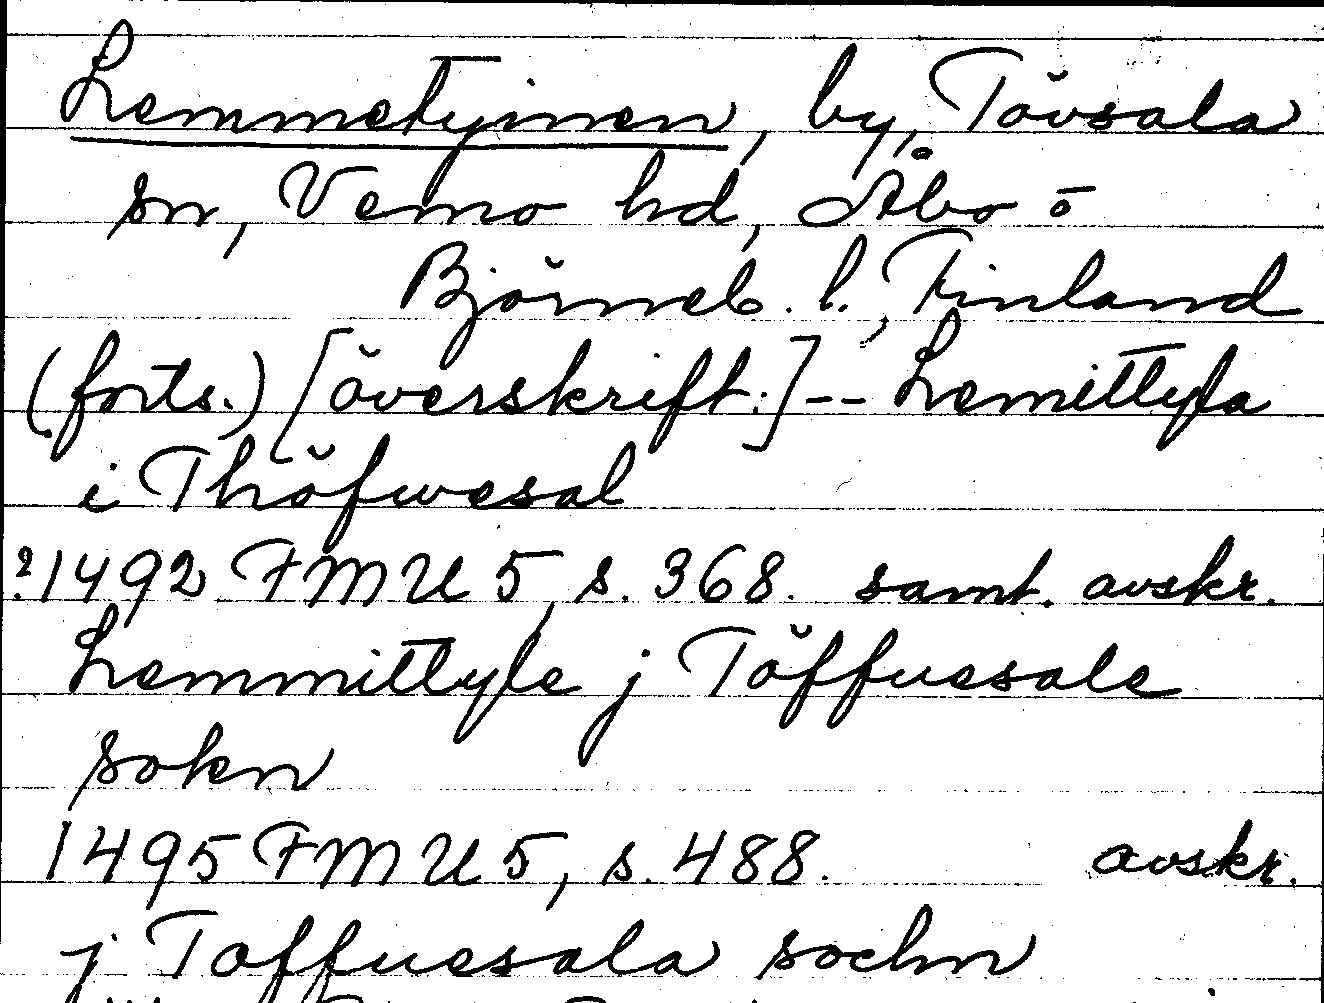 Lemmetyinen, by, Tövsala
sn, Vemo hd, Åbo o
Björneb. l., Finland
(forts.) [överskrift:] -- Lemittyla
i Thöfwesal
?1492 FMU 5, s. 368. samt. avskr.
Lemmittyle j Töffuesale
sokn
1495 FMU 5, s. 488. avskr.
j Toffuesala sochn